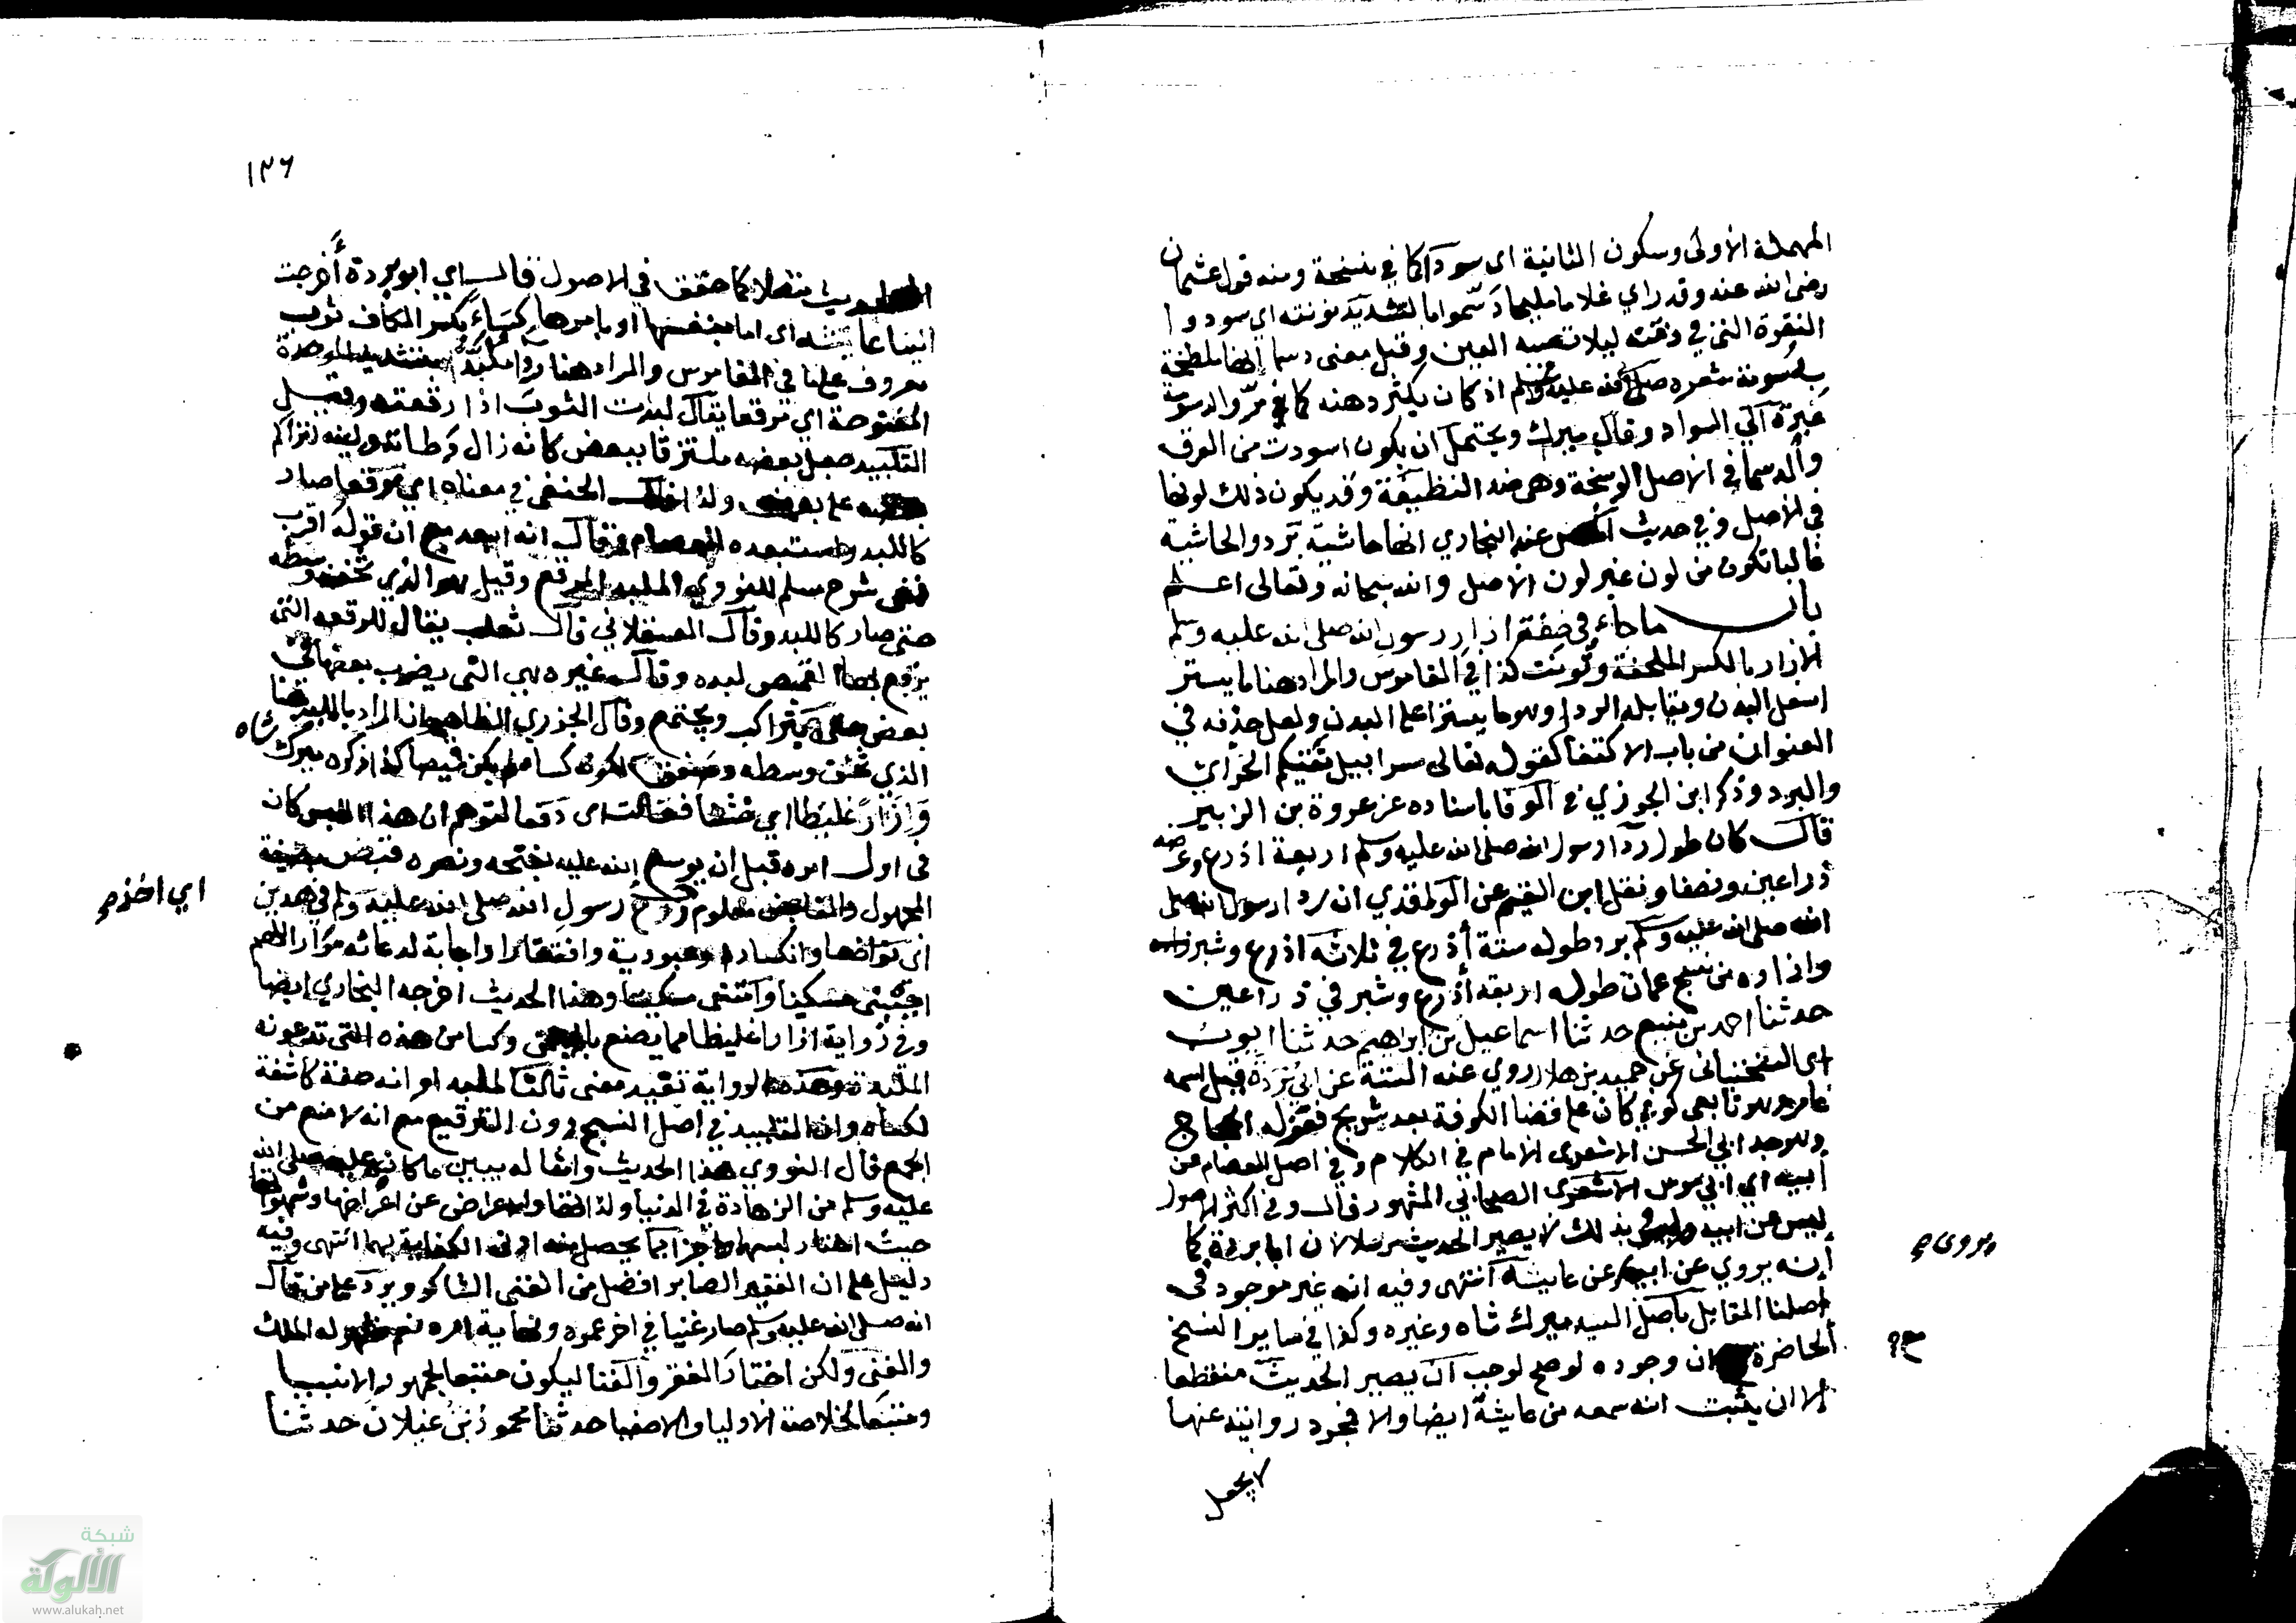 المهملة الأولى وسكون الثانية اى سوداء كما في نسخة ومنه قول عثمان
رضى الله عنه وقد راي غلاما مليحا دسموا بالتشديد نونته اي سودوا
النقرة التى في ذقنه ليلا تصيبه العين وقيل معنى دسما انها ملطخة
بدسومة شعره صلى الله عليه وسلم اذ كان يكثر دهنه كما مر والدسومة
غبرة الي السواد وقال ميرك ويحتمل ان يكون اسودت من العرق
والدسما في الأصل الوسخة وهى ضد النظيفة وقد يكون ذلك لونها
في الاصل وفي حديث عند البخاري انها حاشية برد والحاشية
غالبا تكون من لون غير لون الاصل والله سبحانه وتعالى اعلم
باب ما جاء في صفة ازار رسول الله صلى الله عليه وسلم
الازار بالكسر الملحفة وتونث كذا في القاموس والمراد هنا ما يستر
اسفل البدن ويقابله الردا وهو ما يستر اعلى البدن ولعل حذفه في
العنوان من باب الاكتفا كقوله تعالى سرابيل تقيكم الحر اي
والبرد وذكر ابن الجوزي في الوفا باسناده عن عروة بن الزبير
قال كان طول ردا رسول الله صلى الله عليه وسلم اربعة اذرع وعرضه
ذراعين ونصفا ونقل ابن القيم عن الواقدي ان ردا رسول الله صلى
الله صلى الله عليه وسلم برد طوله ستة أذرع في ثلاثة اذرع وشبر
وازاره من نسج عمان طوله اربعة أذرع وشبر في ذراعين
حدثنا احمد بن منيع حدثنا اسماعيل بن ابراهيم حدثنا ايوب
اى السختياني عن حميد بن هلال روي عنه الستة عن ابي بردة قيل اسمه
عامر وهو تابعى كوفي كان على قضا الكوفة بعد شريح فعزله الحجاج
وهو جد ابي الحسن الاشعرى الامام في الكلام وفي اصل العصام عن
أبيه اي ابي موسى الاشعرى الصحابي المشهور قال وفي اكثر الاصول
ليس عن ابيه بذلك لا يصير الحديث مرسلا لان ابا بردة كما
ويروى
أنه يروي عن ابيه عن عايشة انتهى وفيه انه غير موجود في
اصلنا المقابل باصل السيد ميرك شاه وغيره وكذا في ساير النسخ
الحاضرة ان وجوده لو صح لوجب ان يصير الحديث منقطعا
إلا ان يثبت انه سمعه من عايشة ايضا والا فمجرد روايته عنها
لا يجعل
١٣٦
الحديث متصلا كما حقق في الاصول قال اي ابو بردة أخرجت
الينا عايشة اى اما بنفسها او بامرها كساء بكسر الكاف ثوب
معروف على ما في القاموس والمراد هنا ردا ملبدا بتشديد الموحدة
المفتوحة اي مرقعا يقال لبدت الثوب اذا رقعته وقيل
التلبيد جعل بعضه ملتزقا ببعض كانه زال وطاته ولينه لتراكم
بعضه على بعض ولذا قال الحنفى في معناه اي مرقعا صار
كاللبد واستبعده العصام فقال انه ابعد مع ان قوله اقرب
ففى شرح مسلم للنووي الملبد المرقع وقيل هو الذي ثخن وسطه
حتى صار كاللبد وقال العسقلاني قال ثعلب يقال للرقعة التى
يرقع بها القميص لبدة وقال غيره هي التى يضرب بعضها في
بعض حتى يتراكب ويجتمع وقال الجزري الظاهر ان المراد بالملبد هنا
الذي ثخن وسطه وصفق لكونه كسا لم يكن قميصا كذا ذكره ميرك شاه
وازارا غليظا اي خشنا فقالت اى دفعا لتوهم ان هذا اللبس كان
في اول امره قبل ان يوسع الله عليه بفتحه ونصره قبض بصيغة
اي اخذ
المجهول والقابض معلوم روح رسول الله صلى الله عليه وسلم في هذين
اى تواضعا وانكسارا وعبودية وافتقارا واجابة لدعائه مرارا اللهم
احينى مسكينا وامتنى مسكينا وهذا الحديث اخرجه البخاري ايضا
وفي رواية ازارا غليظا مما يصنع باليمن وكسا من هذه التى تدعونه
الملبدة وهذه الرواية تفيد معنى ثالثا للملبد او انه صفة كاشفة
لكساء وان التلبيد في اصل النسج دون الترقيع مع انه لا منع من
الجمع قال النووي هذا الحديث وامثاله يبين ما كان عليه صلى الله
عليه وسلم من الزهادة في الدنيا ولذاتها والاعراض عن اغراضها وشهواتها
حيث اختار لبسهما واجتزا بما يحصل منه ادنى الكفاية بهما انتهى وفيه
دليل على ان الفقير الصابر افضل من الغنى الشاكر ويرد على من قال
انه صلى الله عليه وسلم صار غنيا في اخر عمره ونهاية امره نعم ظهر له الملك
والغنى ولكن اختار الفقر والفنا ليكون متبعا لجمهور الانبيا
ومتبعا لخلاصة الاوليا والاصفيا حدثنا محمود بن غيلان حدثنا
شبكة
الألوكة
www.alukah.net